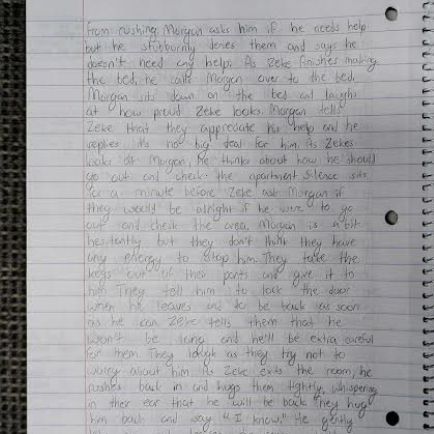 from rushing. Morgan asks him if he needs help
but he stubbornly denes them and says he
doesn't need any help. As Zeke finishes making
the bed, he calls Morgan over to the bed.
Morgan sits down on the bed and laughs
at how proud Zeke looks. Morgan tells
Zeke that they appreciate his help and he
replies it's no big deal for him. As Zekes
looks at Morgan, he thinks about how he should
go out and check the apartment. Silence sits
for a minute before Zeke ask Morgan if
they would be alright if he were to go
out and check the area. Morgan is a bit
hesitantly but they don't think they have
any energy to stop him. They take the
keys out of their pants and give it to
him. They tell him to lock the door
when he leaves and to be back as soon
as he can. Zeke tells them that he
won't be long and he'll be extra careful
for them. They laugh as they try not to
worry about him. As Zeke exits the room, he
rushes back in and hugs them tightly, whispering
in their ear that he will be back. They hug
him back and say "I know." He gently